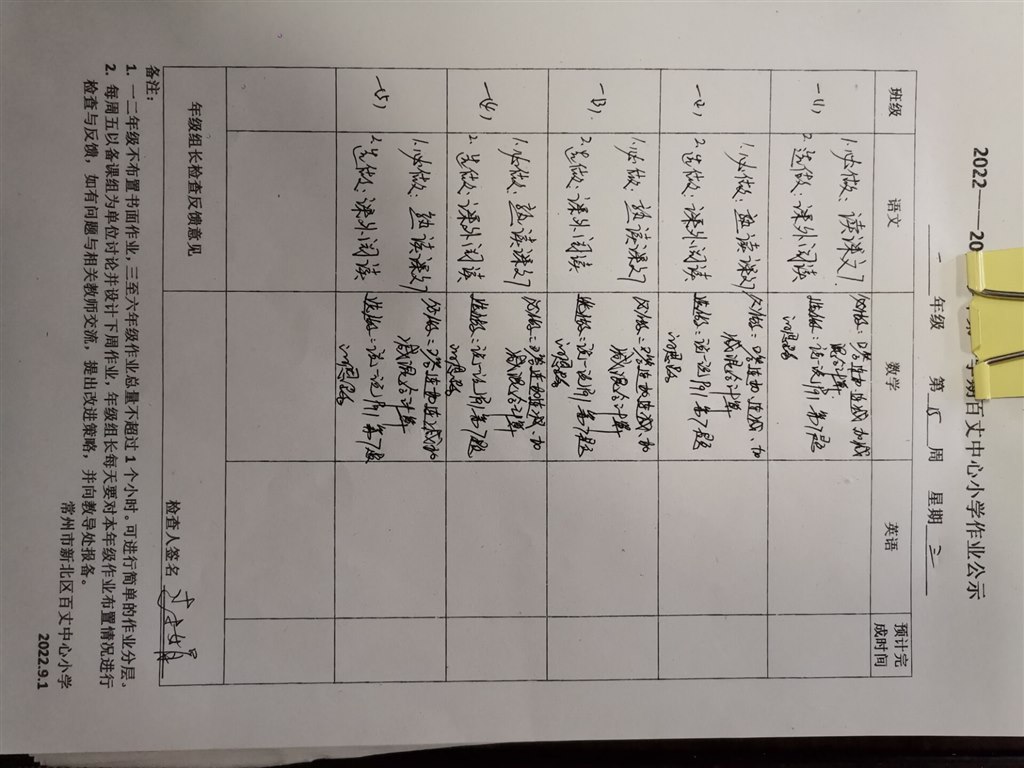 2022——20 学期百丈中心小学作业公示
一 年级 第 15 周 星期 三
班级 语文 数学 英语 预计完成时间
一(1)
1.必做：读课文7
2.选做：课外阅读
必做：口算连加、连减、加减混合计算
选做：说一说 第7题 的思路
一(2)
1.必做：熟读课文7
2.选做：课外阅读
必做：口算连加、连减、加减混合计算
选做：说一说 第7题 的思路
一(3)
1.必做：熟读课文7
2.选做：课外阅读
必做：口算连加连减、加减混合计算
选做：说一说 第7题 的思路
一(4)
1.必做：熟读课文7
2.选做：课外阅读
必做：口算连加连减、加减混合计算
选做：说一说 第7题 的思路
一(5)
1.必做：熟读课文7
2.选做：课外阅读
必做：口算连加连减加减混合计算
选做：说一说 第7题 的思路
年级组长检查反馈意见
检查人签名
备注：
1. 一二年级不布置书面作业，三至六年级作业总量不超过 1 个小时。可进行简单的作业分层、
2. 每周五以备课组为单位讨论并设计下周作业，年级组长每天要对本年级作业布置情况进行
检查与反馈，如有问题与相关教师交流，提出改进策略，并向教导处报备。
常州市新北区百丈中心小学
2022.9.1